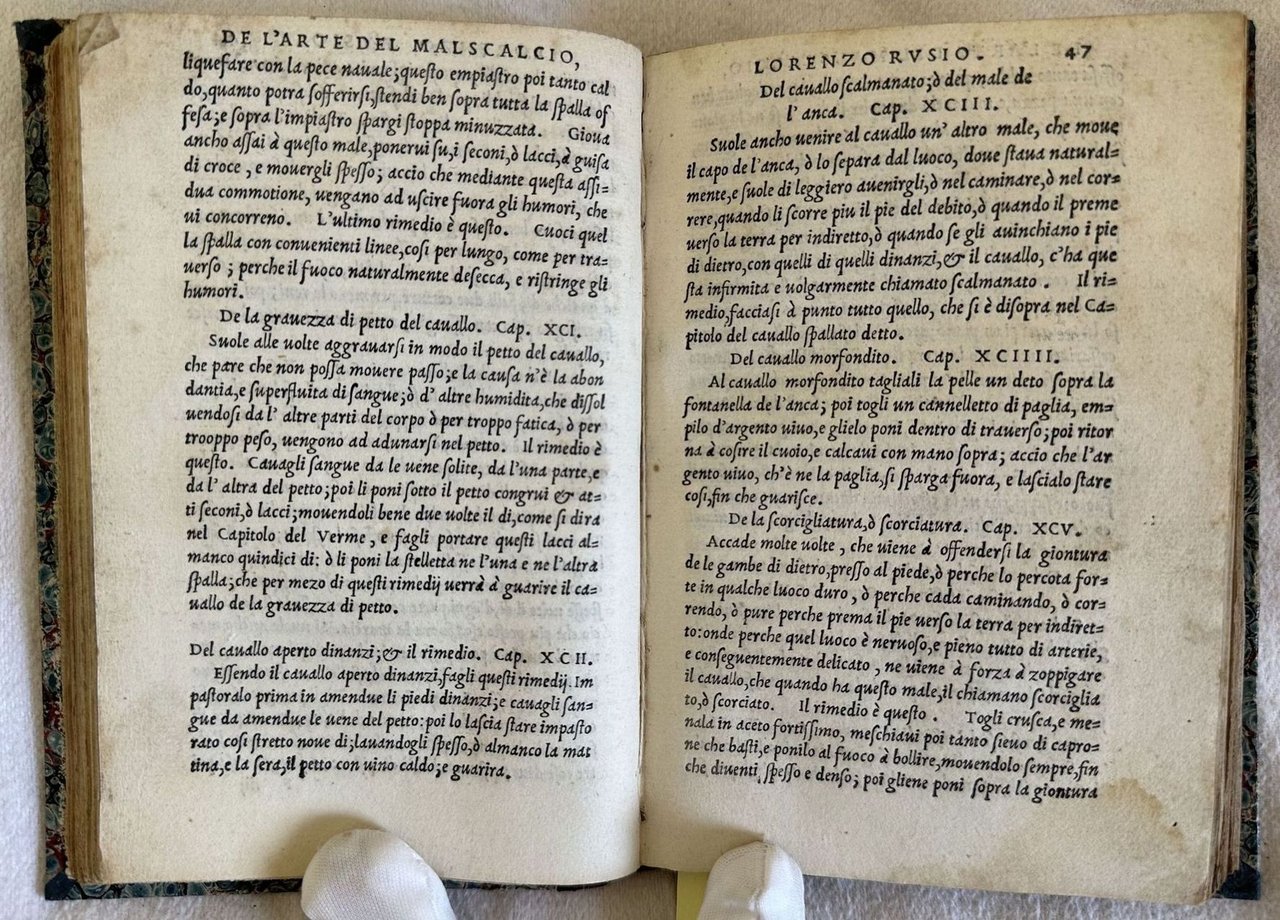 DE L'ARTE DEL MALSCALCIO,
liquefare con la pece nauale; questo empiastro poi tanto cal
do, quanto potra sofferirsi, stendi ben sopra tutta la spalla of
fesa; e sopra l'impiastro spargi stoppa minuzzata. Gioua
ancho assai à questo male, ponerui su, i seconi, ò lacci, à guisa
di croce, e mouergli spesso; accio che mediante questa assi-
dua commotione, vengano ad uscire fuora gli humori, che
ui concorreno. L'ultimo rimedio è questo. Cuoci quel
la spalla con conuenienti linee, cosi per lungo, come per tra-
uerso; perche il fuoco naturalmente desecca, e ristringe gli
humori.
De la grauezza di petto del cauallo. Cap. XCI.
Suole alle uolte aggrauarsi in modo il petto del cauallo,
che pare che non possa mouere passo; e la causa n'è la abon
dantia, e superfluita di sangue; ò d'altre humidita, che dissol
uendosi da l'altre parti del corpo ò per troppo fatica, ò per
trooppo peso, uengono ad adunarsi nel petto. Il rimedio è
questo. Cauagli sangue da le uene solite, da l'una parte, e
da l'altra del petto; poi li poni sotto il petto congrui & at-
ti seconi, ò lacci; mouendoli bene due uolte il di, come si dira
nel Capitolo del Verme, e fagli portare questi lacci al-
manco quindici di: ò li poni la stelletta ne l'una e ne l'altra
spalla; che per mezo di questi rimedij uerrà à guarire il ca-
uallo de la grauezza di petto.
Del cauallo aperto dinanzi; & il rimedio. Cap. XCII.
Essendo il cauallo aperto dinanzi, fagli questi rimedij. Im
pastoralo prima in amendue li piedi dinanzi; e cauagli san-
gue da amendue le uene del petto: poi lo lascia stare impasto
rato cosi stretto noue di; lauandogli spesso, ò almanco la mat
tina, e la sera, il petto con uino caldo; e guarira.
LORENZO RVSIO. 47
Del cauallo scalmanato; ò del male de
l'anca. Cap. XCIII.
Suole ancho uenire al cauallo un'altro male, che moue
il capo de l'anca, ò lo separa dal luoco, doue staua natural-
mente, e suole di leggiero auenirgli, ò nel caminare, ò nel cor-
rere, quando li scorre piu il pie del debito, ò quando il preme
uerso la terra per indiretto, ò quando se gli auinchiano i pie
di dietro, con quelli di quelli dinanzi, & il cauallo, c'ha que
sta infirmita e uolgarmente chiamato scalmanato. Il ri-
medio, facciasi à punto tutto quello, che si è disopra nel Ca-
pitolo del cauallo spallato detto.
Del cauallo morfondito. Cap. XCIIII.
Al cauallo morfondito tagliali la pelle un deto sopra la
fontanella de l'anca; poi togli un cannelletto di paglia, em-
pilo d'argento uiuo, e glielo poni dentro di trauerso; poi ritor
na à cosire il cuoio, e calcaui con mano sopra; accio che l'ar
gento uiuo, ch'è ne la paglia, si sparga fuora, e lascialo stare
cosi, fin che guarisce.
De la scorcigliatura, ò scorciatura. Cap. XCV.
Accade molte uolte, che uiene à offendersi la giontura
de le gambe di dietro, presso al piede, ò perche lo percota for-
te in qualche luoco duro, ò perche cada caminando, ò cor-
rendo, ò pure perche prema il pie uerso la terra per indiret-
to: onde perche quel luoco è neruoso, e pieno tutto di arterie,
e conseguentemente delicato, ne uiene à forza à zoppigare
il cauallo, che quando ha questo male, il chiamano scorciglia
to, ò scorciato. Il rimedio è questo. Togli crusca, e me-
nala in aceto fortissimo, meschiaui poi tanto sieuo di capro-
ne che basti, e ponilo al fuoco à bollire, mouendolo sempre, fin
che diuenti spesso e denso; poi gliene poni sopra la giontura